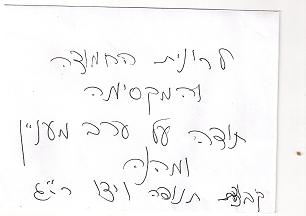 לרונית החמודה
והמקסימה
תודה על ערב מעניין
ומהנה
קבוצת תנופה ויצו ר"ג